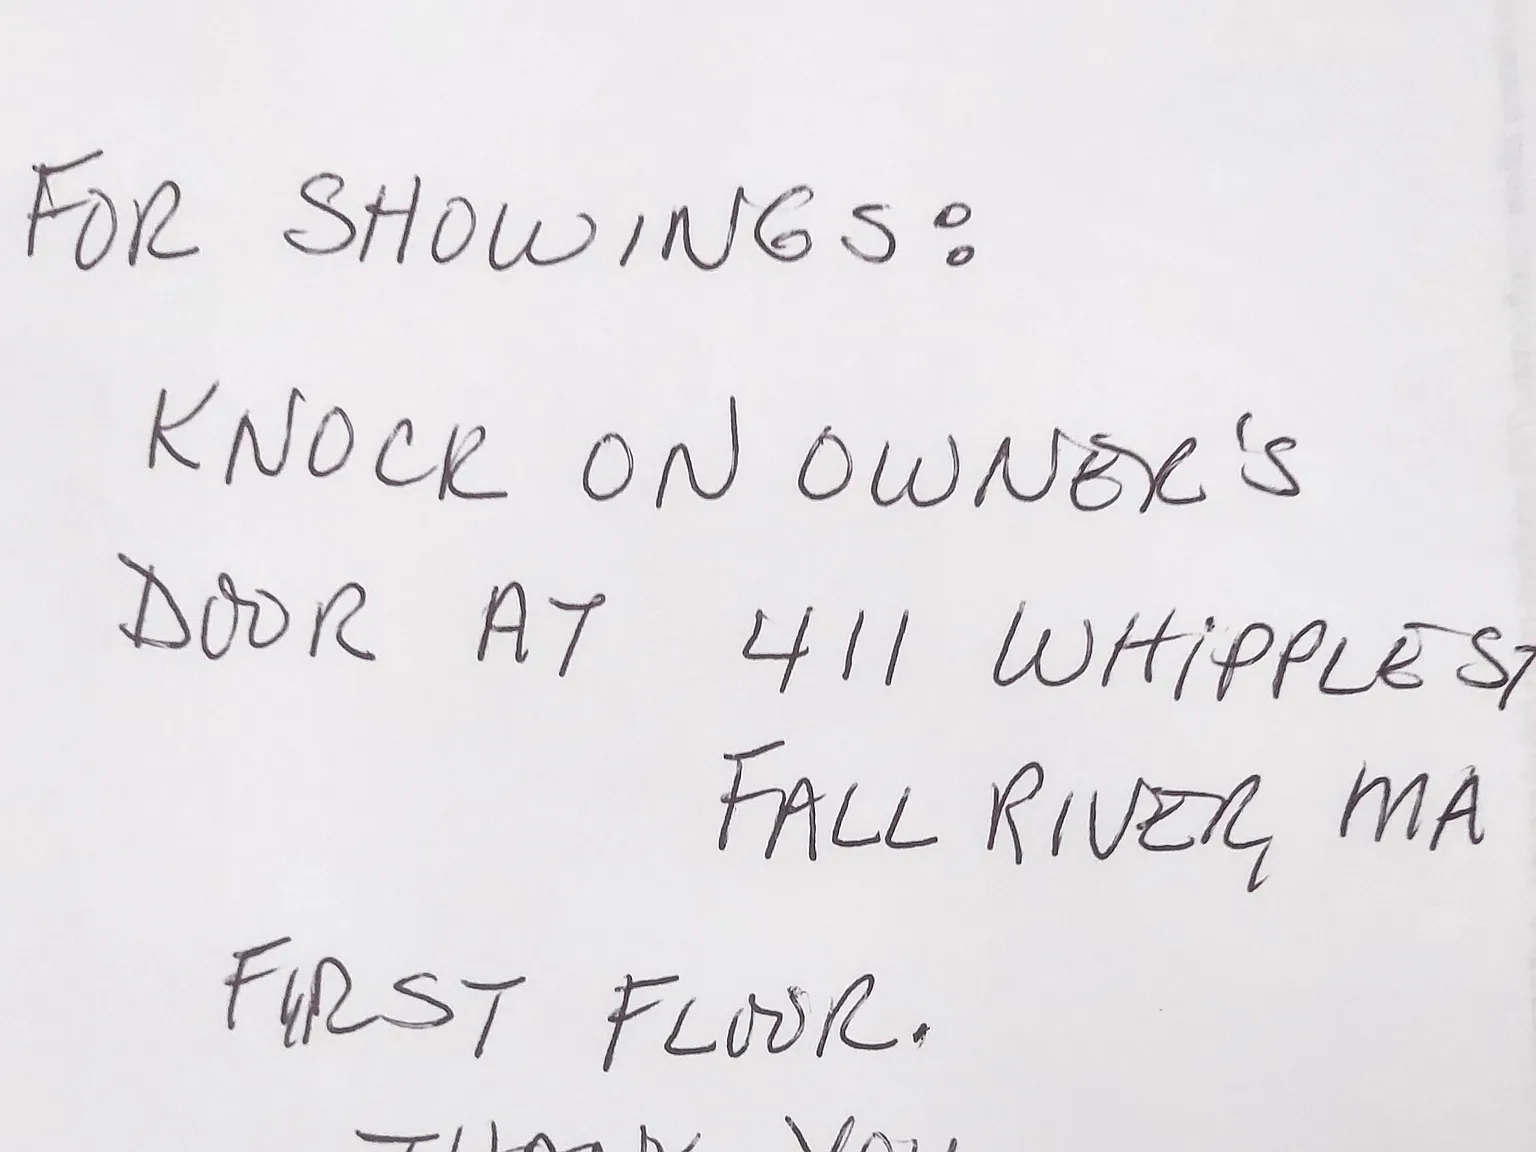 FOR SHOWINGS:
KNOCK ON OWNER'S
DOOR AT 411 WHIPPLE ST
FALL RIVER, MA
FIRST FLOOR.
THANK YOU